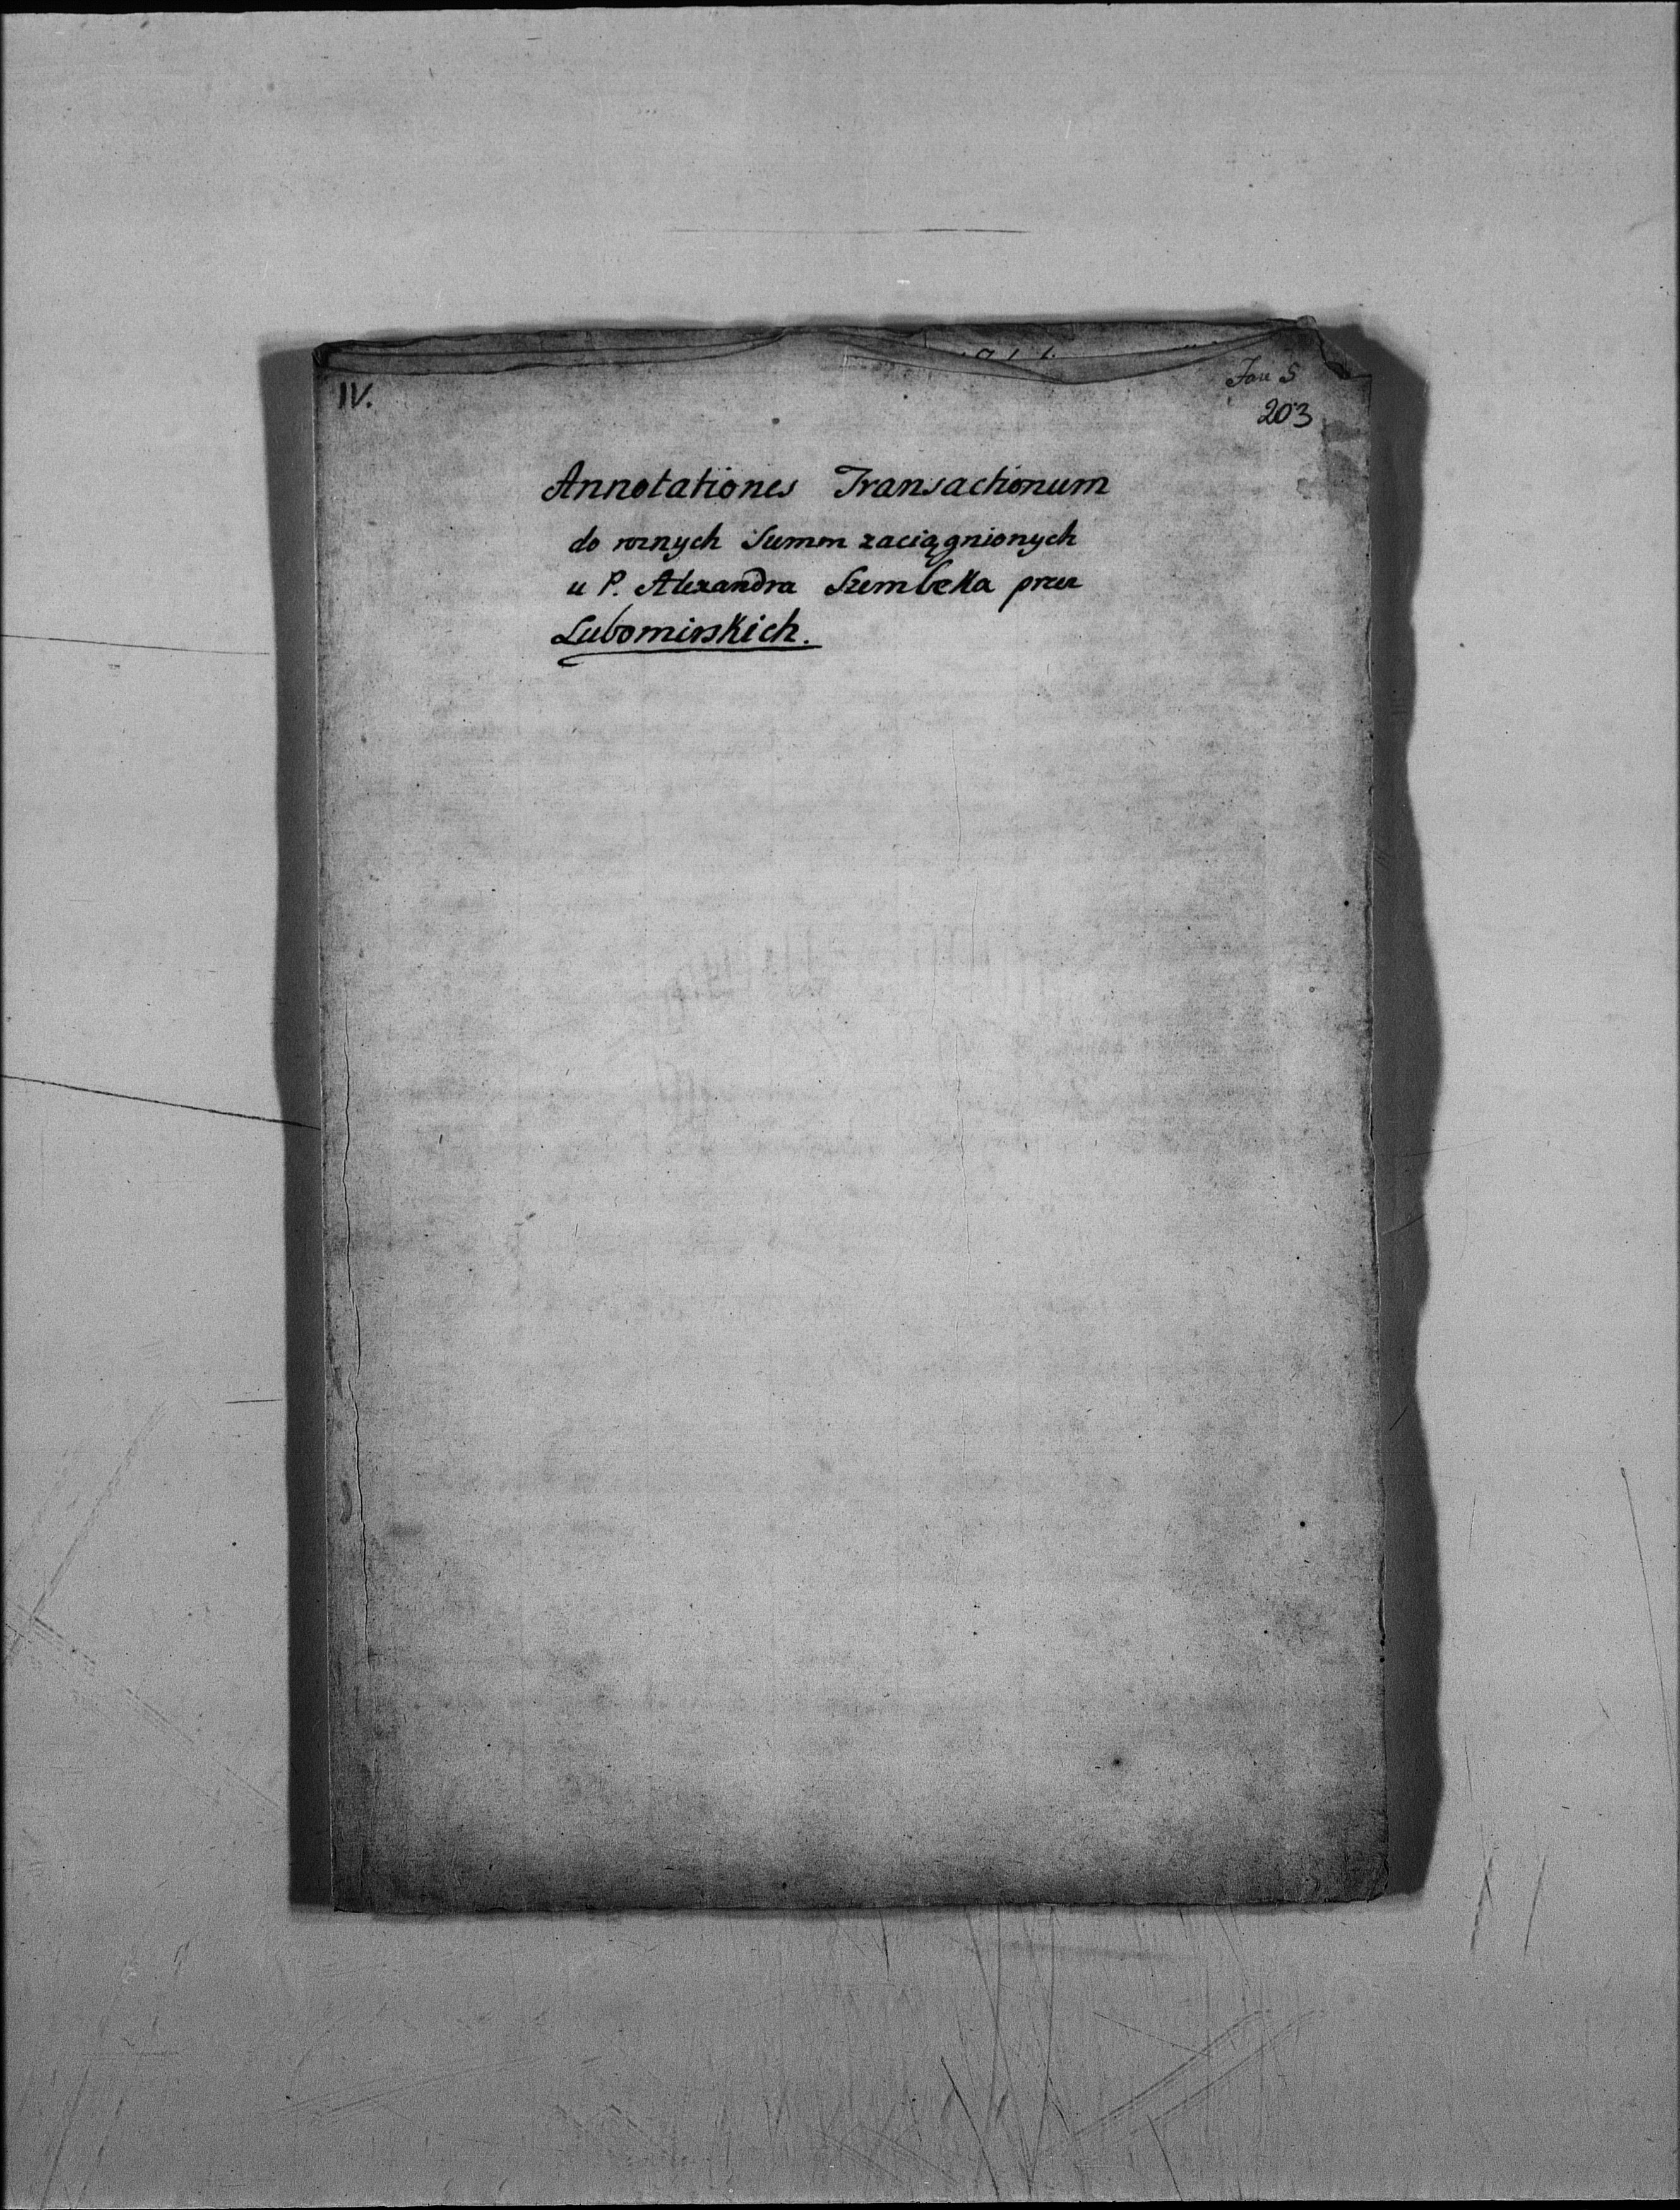 IV.
203
Annotationes Transactionum
do rożnych Summ zaciągnionych
u P. Alexandra Szembeka przez
Lubomirskich.